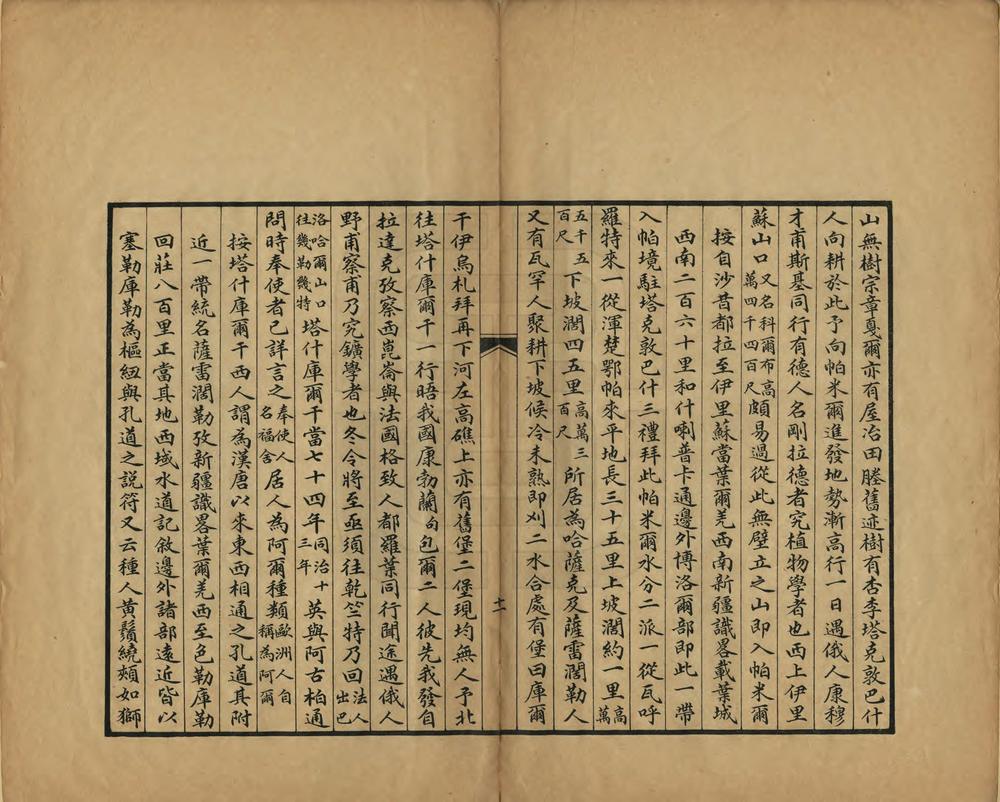 山無樹宗章戛爾亦有屋冶田塍舊迹樹有杏李塔克敦巴什
人向耕於此予向帕米爾進發地勢漸高行一日遇俄人康穆
才甫斯基同行有德人名剛拉德者究植物學者也西上伊里
蘇山口又名科爾布高萬四千四百尺頗易過從此無壁立之山即入帕米爾
按自沙昔都拉至伊里蘇當葉爾羌西南新疆識畧載葉城
西南二百六十里和什喇普卡通邊外博洛爾部即此一帶
入帕境駐塔克敦巴什三禮拜此帕米爾水分二派一從瓦呼
羅特來一從渾楚鄂帕來平地長三十五里上坡濶約一里高萬
五千五百尺下坡濶四五里高萬三百尺所居為哈薩克及薩雷濶勒人
又有瓦罕人聚耕下坡候冷未熟即刈二水合處有堡曰庫爾
十一
干伊烏札拜再下河左高礁上亦有舊堡二堡現均無人予北
往塔什庫爾干一行晤我國康勃蘭勾包爾二人彼先我發自
拉達克攷察西崑崙與法國格致人都羅葉同行聞途遇俄人
野甫察甫乃究鑛學者也冬令將至亟須往乾竺特乃回法人出巴
洛哈爾山口往幾勒幾特塔什庫爾干當七十四年同治十三年英與阿古柏通
問時奉使者已詳言之奉使人名福舍居人為阿爾種類歐洲人自稱為阿爾
按塔什庫爾干西人謂為漢唐以來東西相通之孔道其附
近一帶統名薩雷濶勒攷新疆識畧葉爾羌西至色勒庫勒
回莊八百里正當其地西域水道記敘邊外諸部遠近皆以
塞勒庫勒為樞紐與孔道之說符又云種人黃鬚繞頰如獅